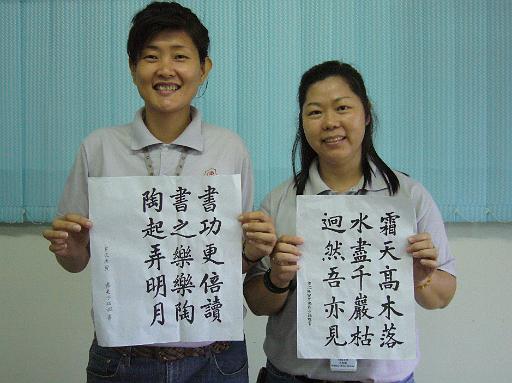 書功更倍讀
書之樂樂陶
陶起弄明月
霜天高木落
水盡千嚴枯
迥然吾亦見